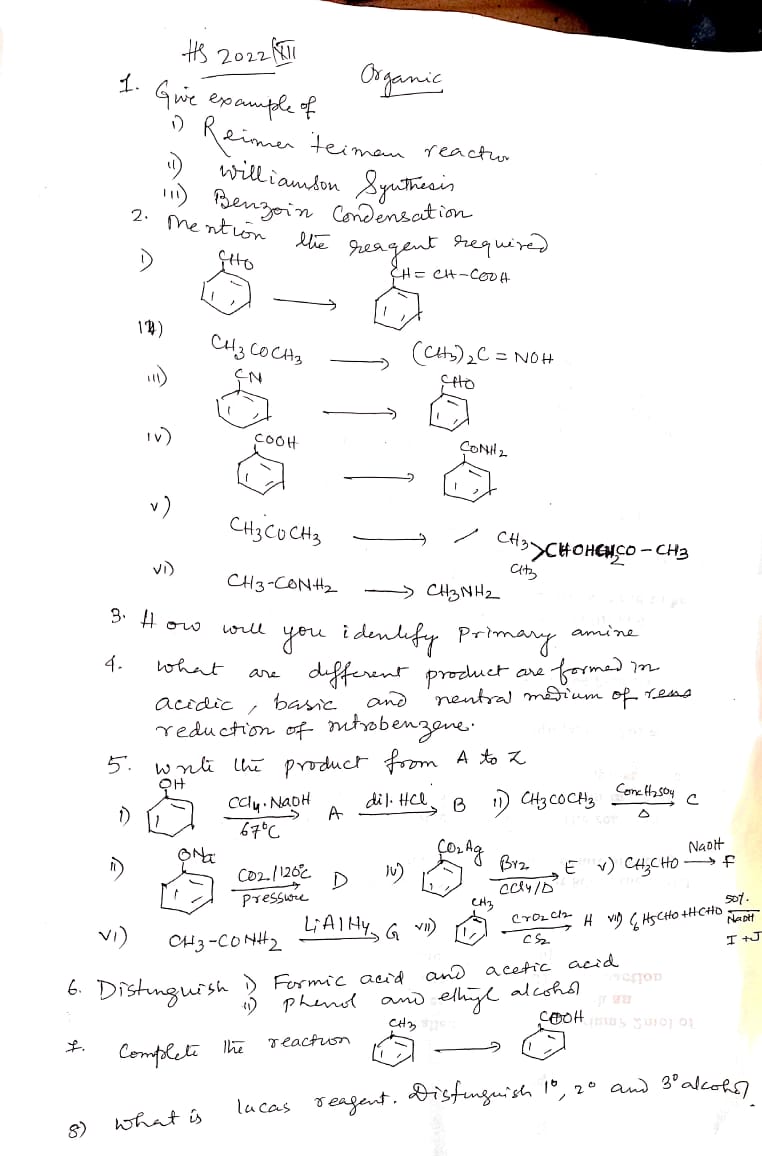 HS 2022 XII
Organic
1. Give example of
i) Reimer teiman reaction
ii) Williamson Synthesis
iii) Benzoin Condensation
2. Mention the reagent required
i) CHO → CH = CH-COOH
ii) CH3COCH3 → (CH3)2C = NOH
iii) CN → CHO
iv) COOH → CONH2
v) CH3COCH3 → CH3 CH3 >CHOHCH2CO-CH3
vi) CH3-CONH2 → CH3NH2
3. How will you identify Primary amine
4. What are different product are formed in
acidic, basic and neutral medium of
reduction of nitrobenzene.
5. Write the product from A to Z
i) OH CCl4. NaOH 67°C A dil. HCl B ii) CH3COCH3 Conc H2SO4 Δ C
ii) ONa CO2/120°C Pressure D iv) CO2Ag Br2 CCl4/Δ E v) CH3CHO NaOH F
vi) CH3-CONH2 LiAlH4 G vii) CH3 CrO2Cl2 CS2 H vii) C6H5CHO+HCHO 50% NaOH I+J
6. Distinguish i) Formic acid and acetic acid
ii) Phenol and ethyl alcohol
7. Complete the reaction CH3 → COOH
8) What is lucas reagent. Distinguish 1°, 2° and 3° alcohol